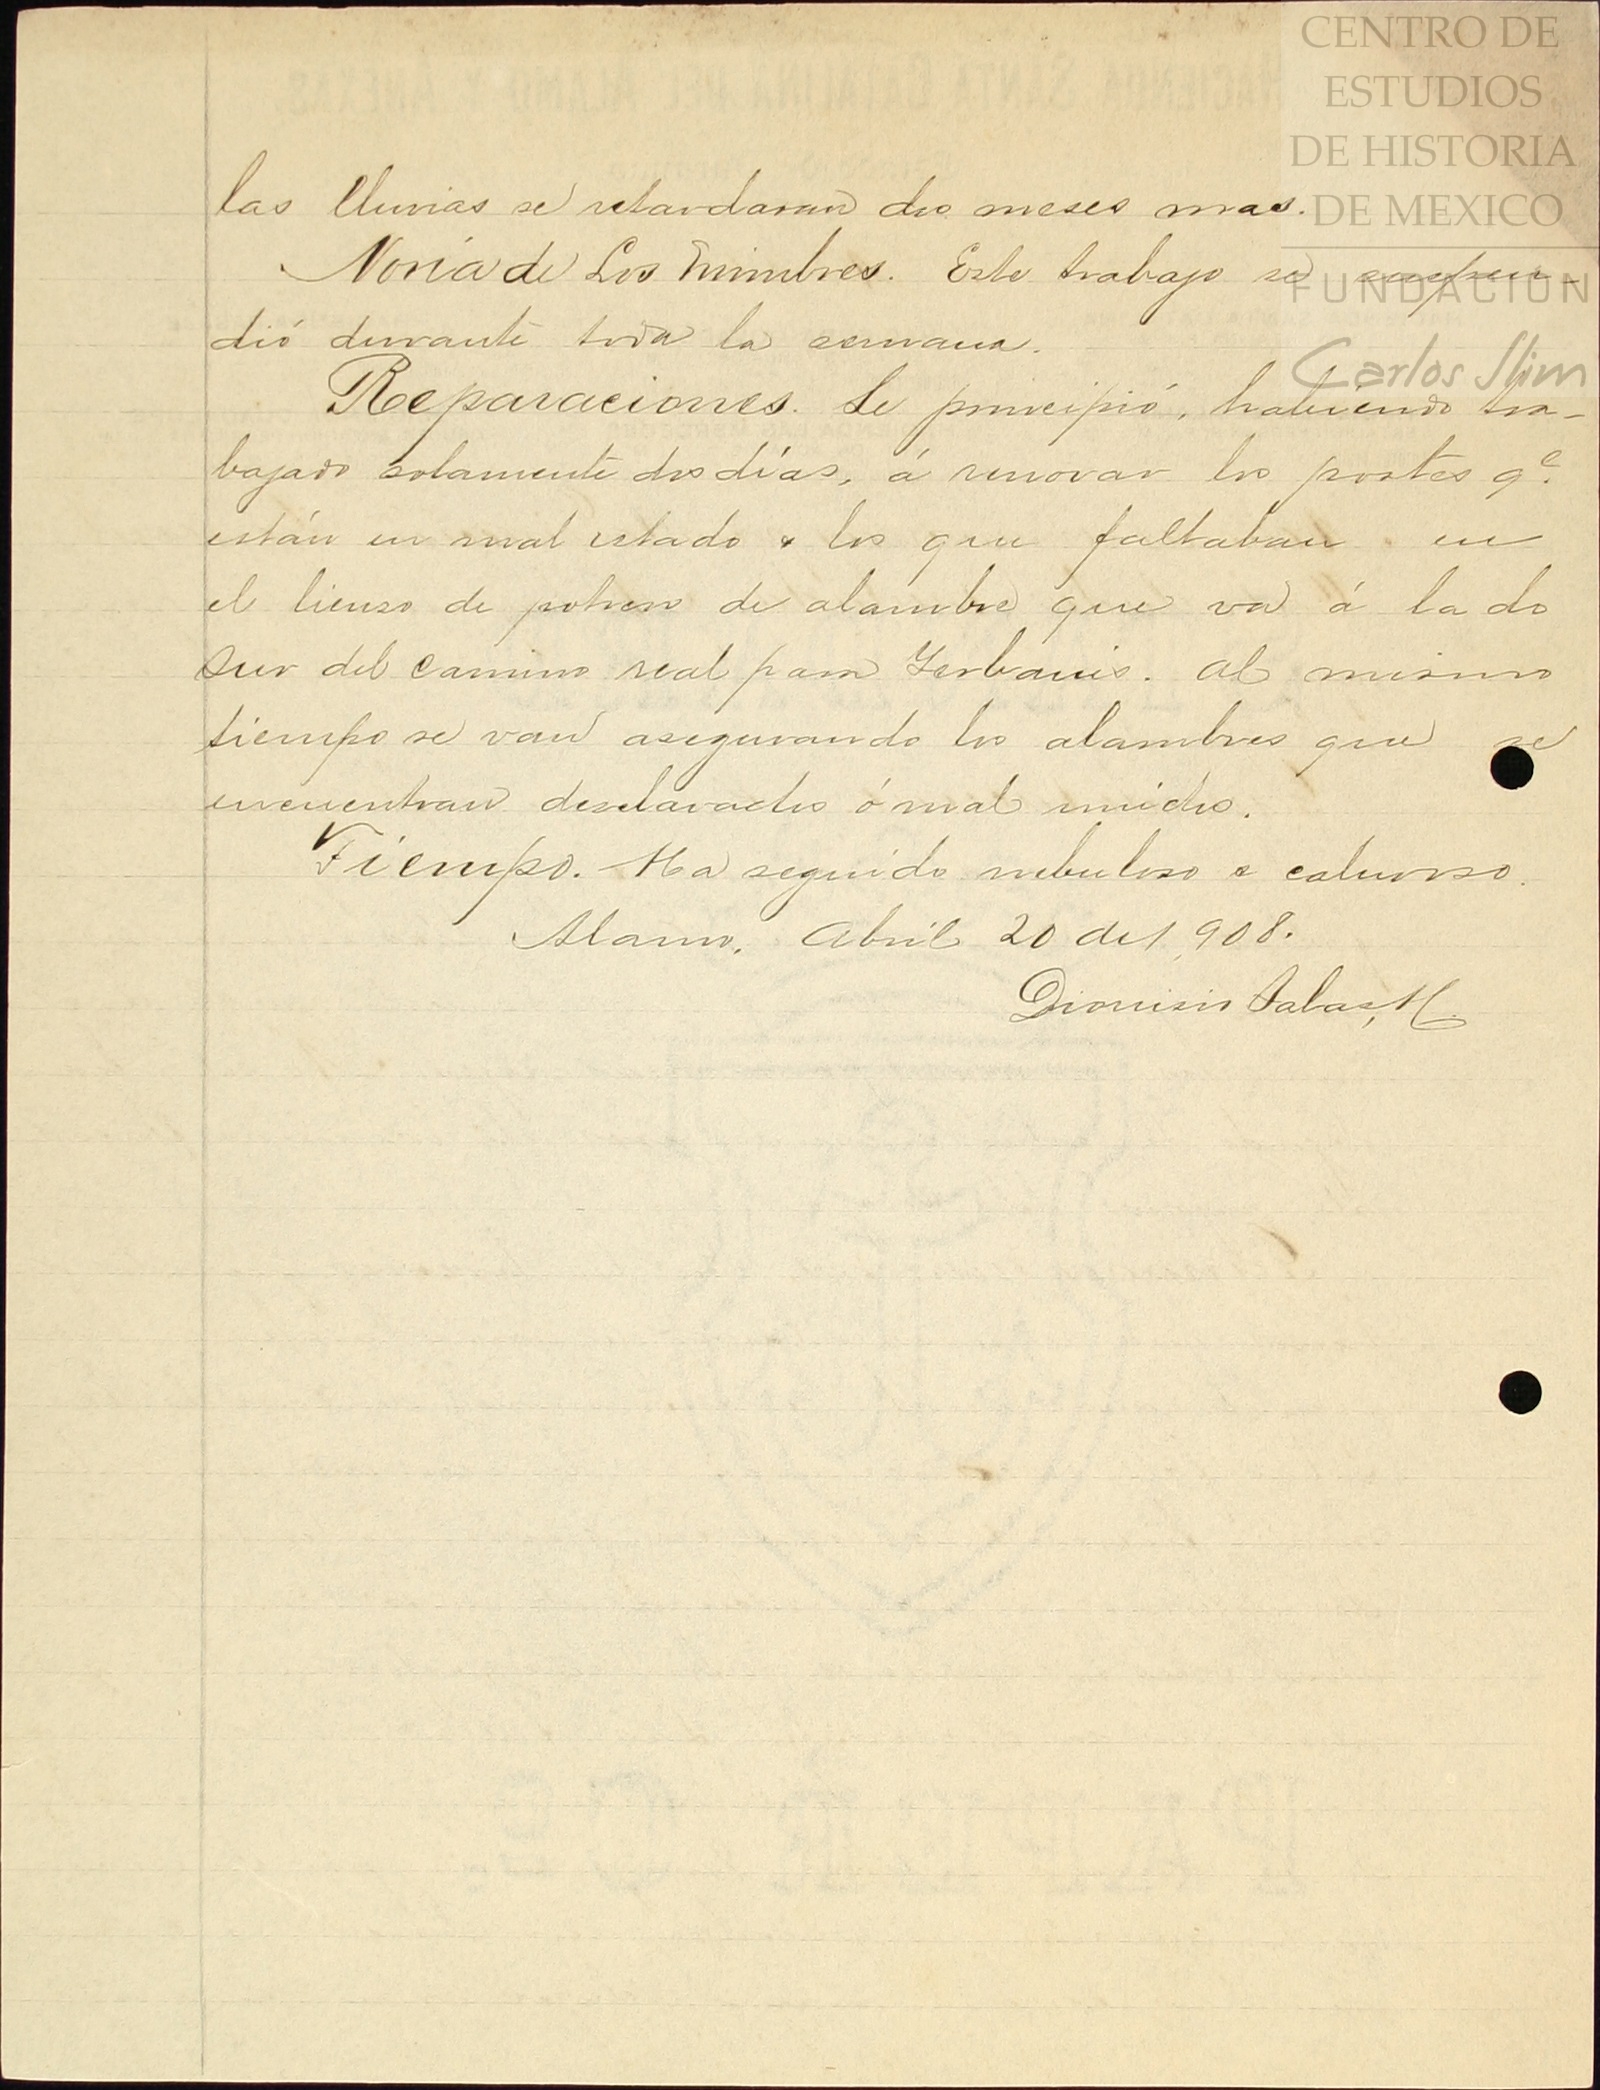 CENTRO DE
ESTUDIOS
DE HISTORIA
DE MEXICO
FUNDACION
Carlos Slim
las lluvias se retardaran dos meses mas.
Noria de Los Mimbres. Este trabajo se suspen-
dió durante toda la semana.
Reparaciones. Se principió, habiendo tra-
bajado solamente dos días, á renovar los postes qe.
están en mal estado & los que faltaban en
el lienzo de potrero de alambre que va á lado
Sur del camino real para Yerbanis. Al mismo
tiempo se van asegurando los alambres que se
encuentran desclavados ó mal unidos.
Tiempo. Ha seguido nebuloso & caluroso.
Alamo, Abril 20 de 1,908.
Dionisio Salas, H.